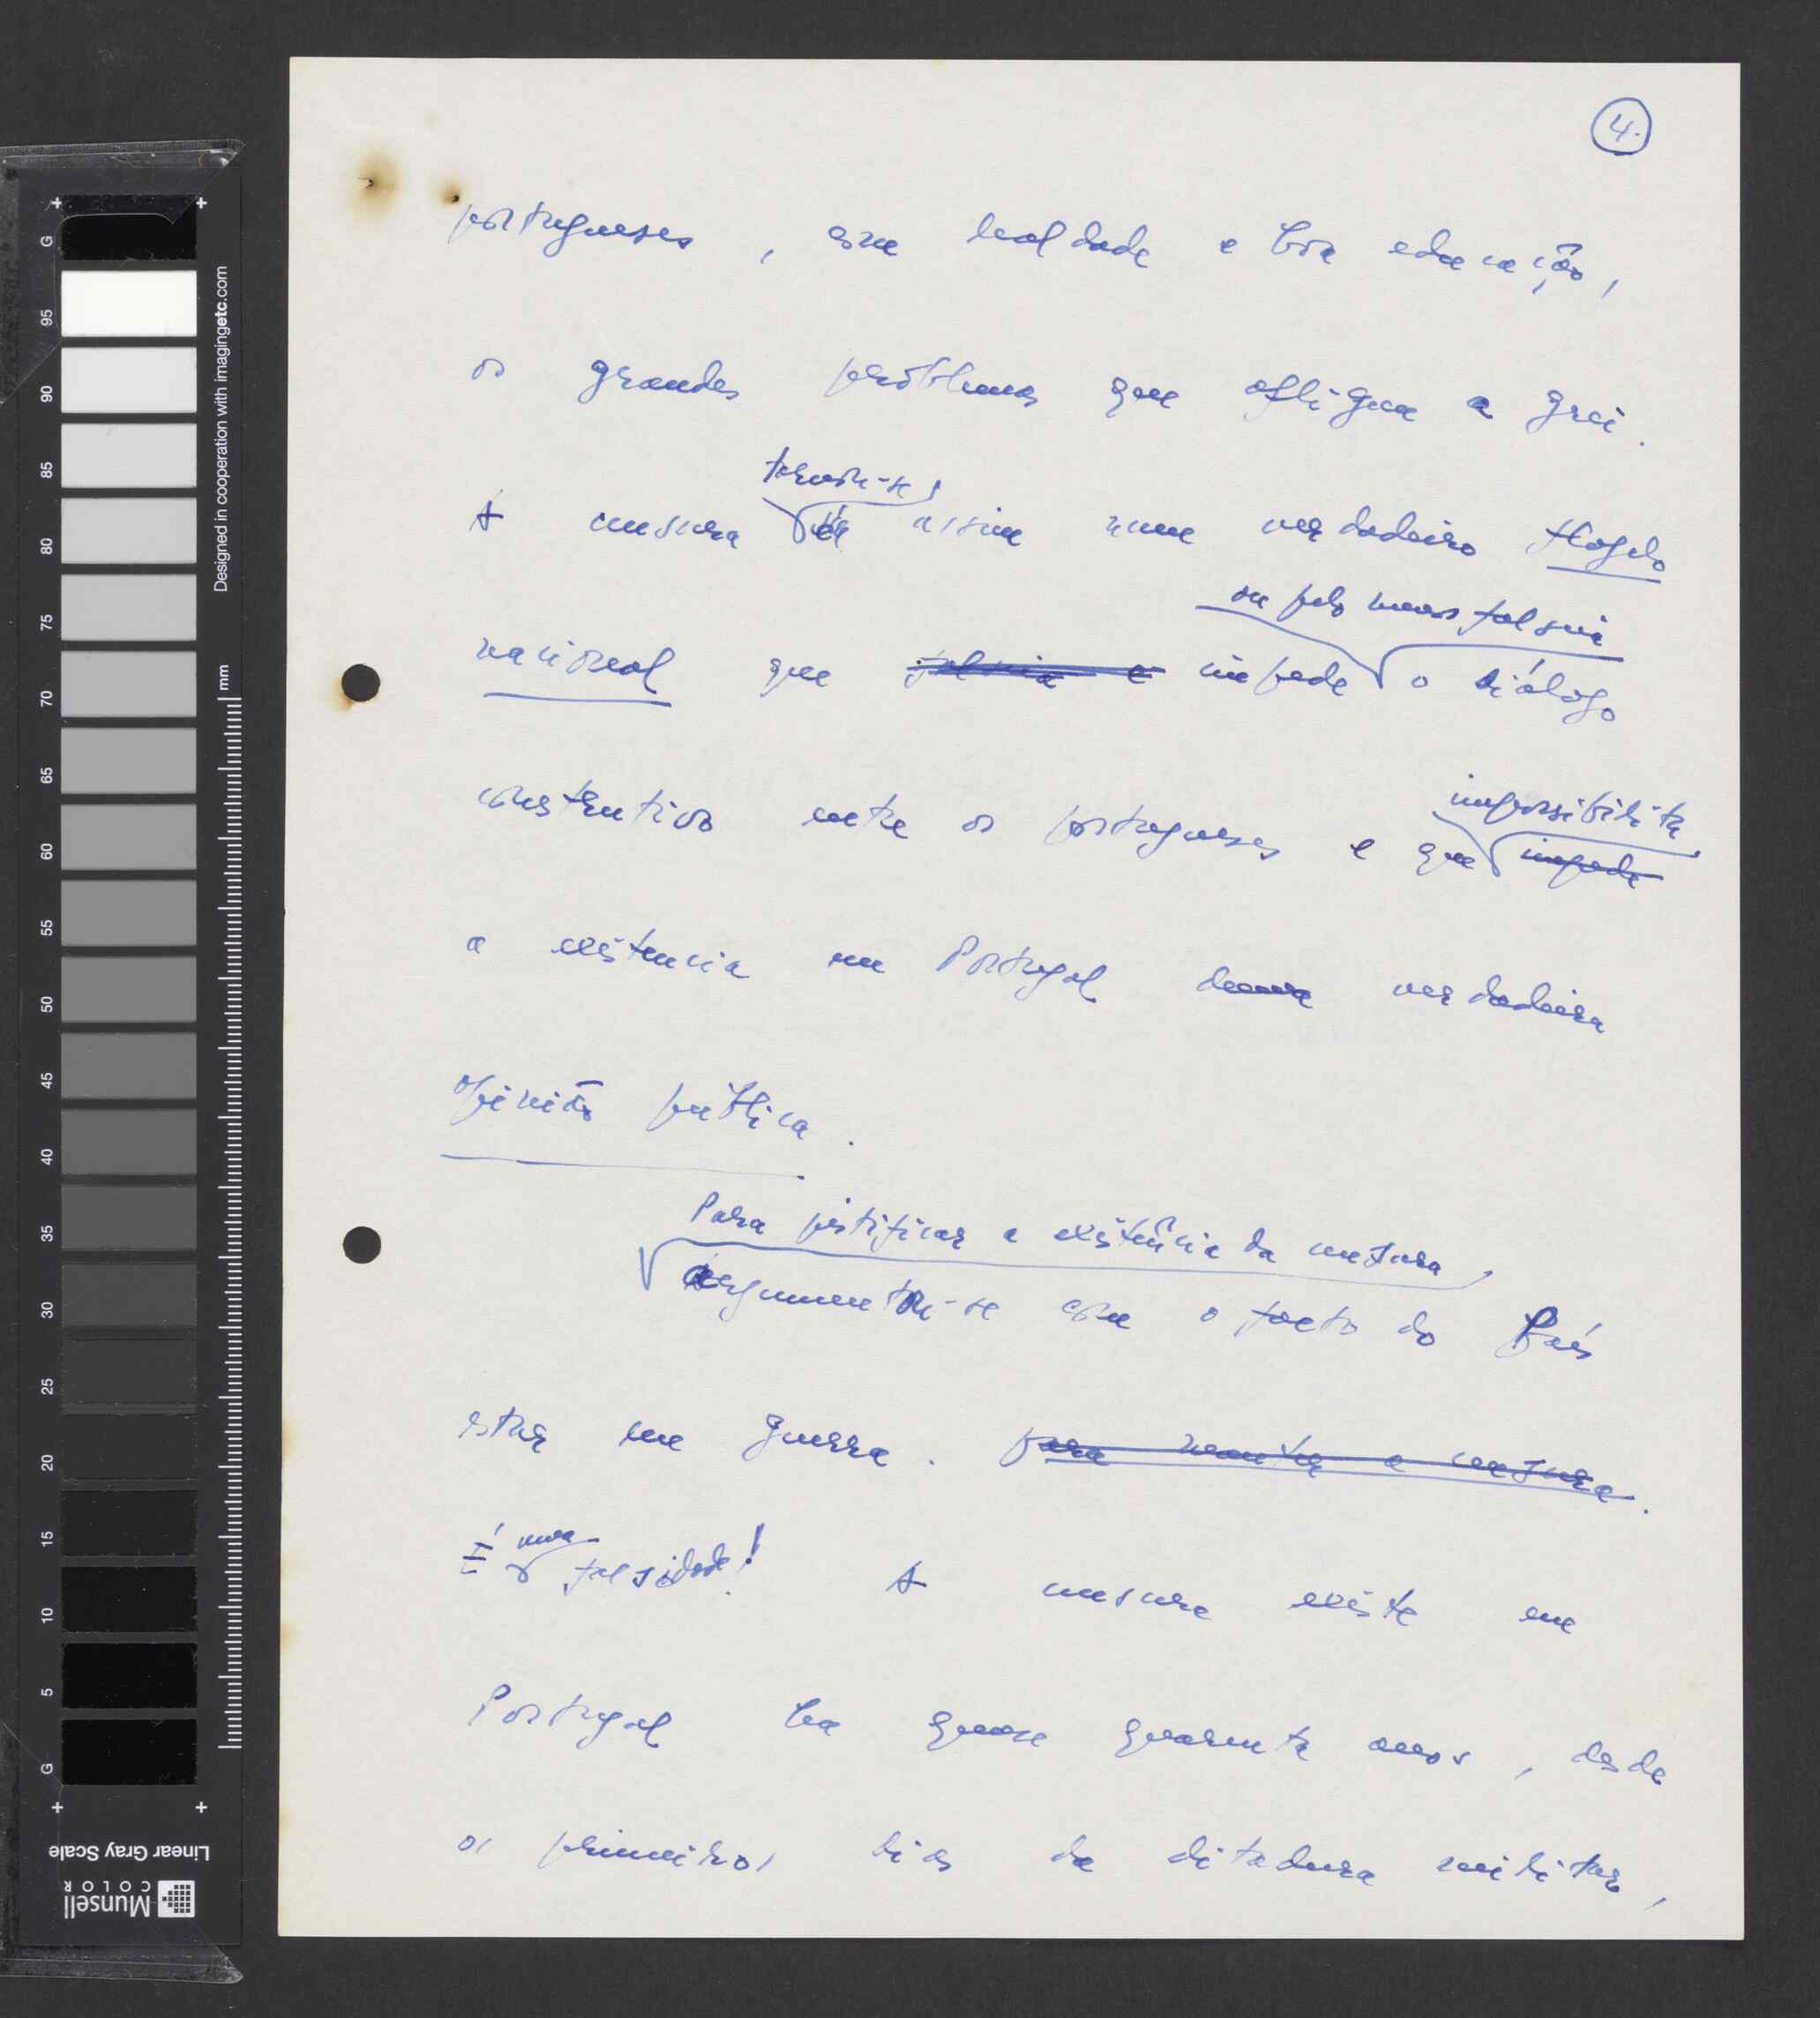 4.
portugueses, com lealdade e boa educação,
os grandes problemas que afligem a grei.
tornou-se
A censura é assim num verdadeiro flagelo
ou pelo menos falseia
nacional que falseia e impede o diálogo
construtivo entre os portugueses e que impede
impossibilita
a existencia em Portugal duma verdadeira
opinião publica.
Para justificar a existência da censura,
argumentou-se com o facto do País
estar em guerra. para manter a censura.
É uma falsidade! A censura existe em
Portugal ha quase quarenta anos, desde
os primeiros dias da ditadura militar,
G
95
90
85
80
75
70
65
60
55
50
45
40
35
30
25
20
15
10
5
G
Designed in cooperation with imagingetc.com
mm
Linear Gray Scale
Munsell
COLOR